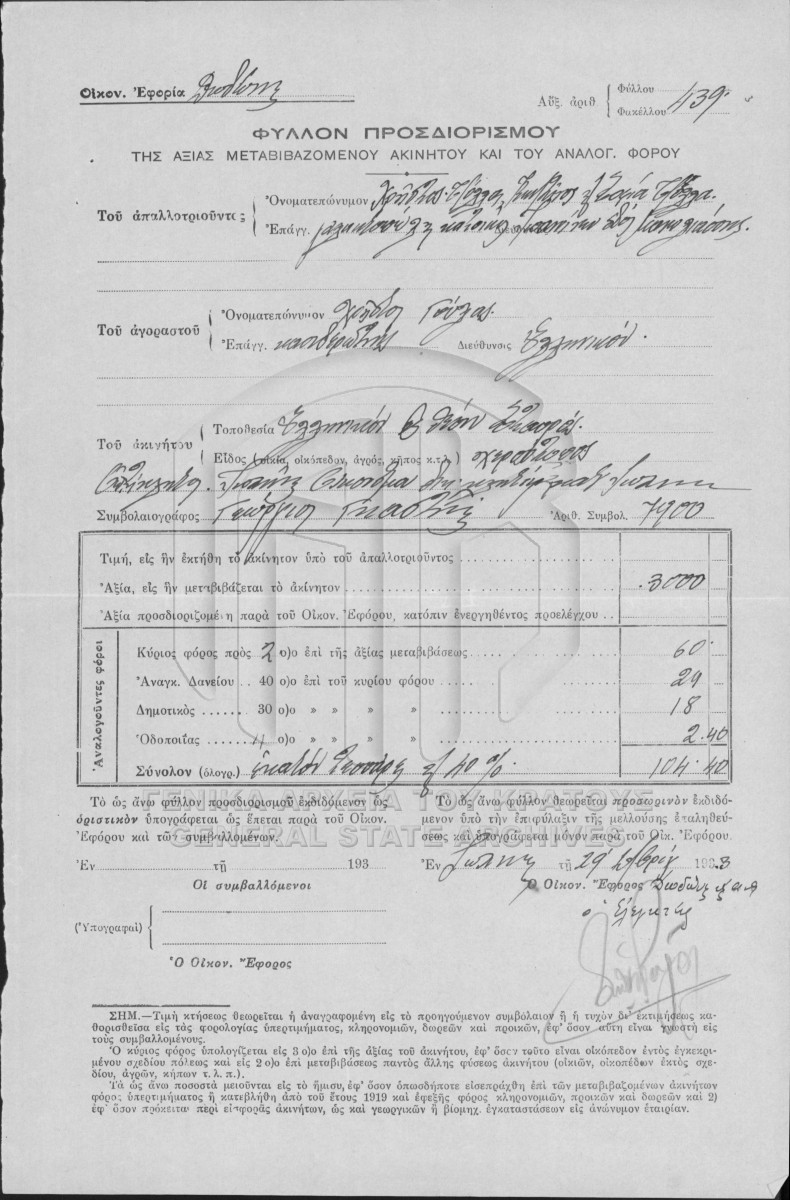 Οἰκον. Ἐφορία Δωδώνης
Αὔξ. ἀριθ. Φύλλου
Φακέλλου 439
ΦΥΛΛΟΝ ΠΡΟΣΔΙΟΡΙΣΜΟΥ
ΤΗΣ ΑΞΙΑΣ ΜΕΤΑΒΙΒΑΖΟΜΕΝΟΥ ΑΚΙΝΗΤΟΥ ΚΑΙ ΤΟΥ ΑΝΑΛΟΓ. ΦΟΡΟΥ
Τοῦ ἀπαλλοτριοῦντος
Ὀνοματεπώνυμον Χρῆστος
Ἐπάγγ.
Τοῦ ἀγοραστοῦ
Ὀνοματεπώνυμον
Ἐπάγγ. Διεύθυνσις Ἑλληνικόν.
Τοῦ ἀκινήτου
Τοποθεσία Ἑλληνικόν
Εἶδος (οἰκία, οἰκόπεδον, ἀγρός, κῆπος κ.τ.λ.)
Συμβολαιογράφος Γεώργιος Ἀριθ. Συμβολ. 7900
Τιμή, εἰς ἣν ἐκτήθη τὸ ἀκίνητον ὑπὸ τοῦ ἀπαλλοτριοῦντος
Ἀξία, εἰς ἣν μεταβιβάζεται τὸ ἀκίνητον 3000
Ἀξία προσδιοριζομένη παρὰ τοῦ Οἰκον. Ἐφόρου, κατόπιν ἐνεργηθέντος προελέγχου
Ἀναλογοῦντες φόροι
Κύριος φόρος πρὸς 2 ο)ο ἐπὶ τῆς ἀξίας μεταβιβάσεως 60
Ἀναγκ. Δανείου 40 ο)ο ἐπὶ τοῦ κυρίου φόρου 24
Δημοτικὸς 30 ο)ο » » » » 18
Ὁδοποιΐας 4 ο)ο » » » » 2.40
Σύνολον (ὁλογρ.) ἑκατὸν τέσσαρες 40 % 104.40
Τὸ ὡς ἄνω φύλλον προσδιορισμοῦ ἐκδιδόμενον ὡς
ὁριστικὸν ὑπογράφεται ὡς ἕπεται παρὰ τοῦ Οἰκον.
Ἐφόρου καὶ τῶν συμβαλλομένων.
Ἐν τῇ 193
Οἱ συμβαλλόμενοι
(Ὑπογραφαὶ)
Ὁ Οἰκον. Ἔφορος
Τὸ ὡς ἄνω φύλλον θεωρεῖται προσωρινὸν ἐκδιδό-
μενον ὑπὸ τὴν ἐπιφύλαξιν τῆς μελλούσης ἐπαληθεύ-
σεως καὶ ὑπογράφεται μόνον παρὰ τοῦ Οἰκ. Ἐφόρου.
Ἐν τῇ 29 1933
Ὁ Οἰκον. Ἔφορος Δωδώνης
ΓΕΝΙΚΑ ΑΡΧΕΙΑ ΤΟΥ ΚΡΑΤΟΥΣ
GENERAL STATE ARCHIVES
ΣΗΜ.—Τιμὴ κτήσεως θεωρεῖται ἡ ἀναγραφομένη εἰς τὸ προηγούμενον συμβόλαιον ἢ ἡ τυχὸν δι' ἐκτιμήσεως κα-
θορισθεῖσα εἰς τὰς φορολογίας ὑπερτιμήματος, κληρονομιῶν, δωρεῶν καὶ προικῶν, ἐφ' ὅσον αὕτη εἶναι γνωστὴ εἰς
τοὺς συμβαλλομένους.
Ὁ κύριος φόρος ὑπολογίζεται εἰς 3 ο)ο ἐπὶ τῆς ἀξίας τοῦ ἀκινήτου, ἐφ' ὅσον τοῦτο εἶναι οἰκόπεδον ἐντὸς ἐγκεκρι-
μένου σχεδίου πόλεως καὶ εἰς 2 ο)ο ἐπὶ μεταβιβάσεως παντὸς ἄλλης φύσεως ἀκινήτου (οἰκιῶν, οἰκοπέδων ἐκτὸς σχε-
δίου, ἀγρῶν, κήπων τ. λ. π.).
Τὰ ὡς ἄνω ποσοστὰ μειοῦνται εἰς τὸ ἥμισυ, ἐφ' ὅσον ὁπωσδήποτε εἰσεπράχθη ἐπὶ τῶν μεταβιβαζομένων ἀκινήτων
φόρος ὑπερτιμήματος ἢ κατεβλήθη ἀπὸ τοῦ ἔτους 1919 καὶ ἐφεξῆς φόρος κληρονομιῶν, προικῶν καὶ δωρεῶν καὶ 2)
ἐφ' ὅσον πρόκειται περὶ εἰσφορᾶς ἀκινήτων, ὡς καὶ γεωργικῶν ἢ βιομηχ. ἐγκαταστάσεων εἰς ἀνώνυμον ἑταιρίαν.